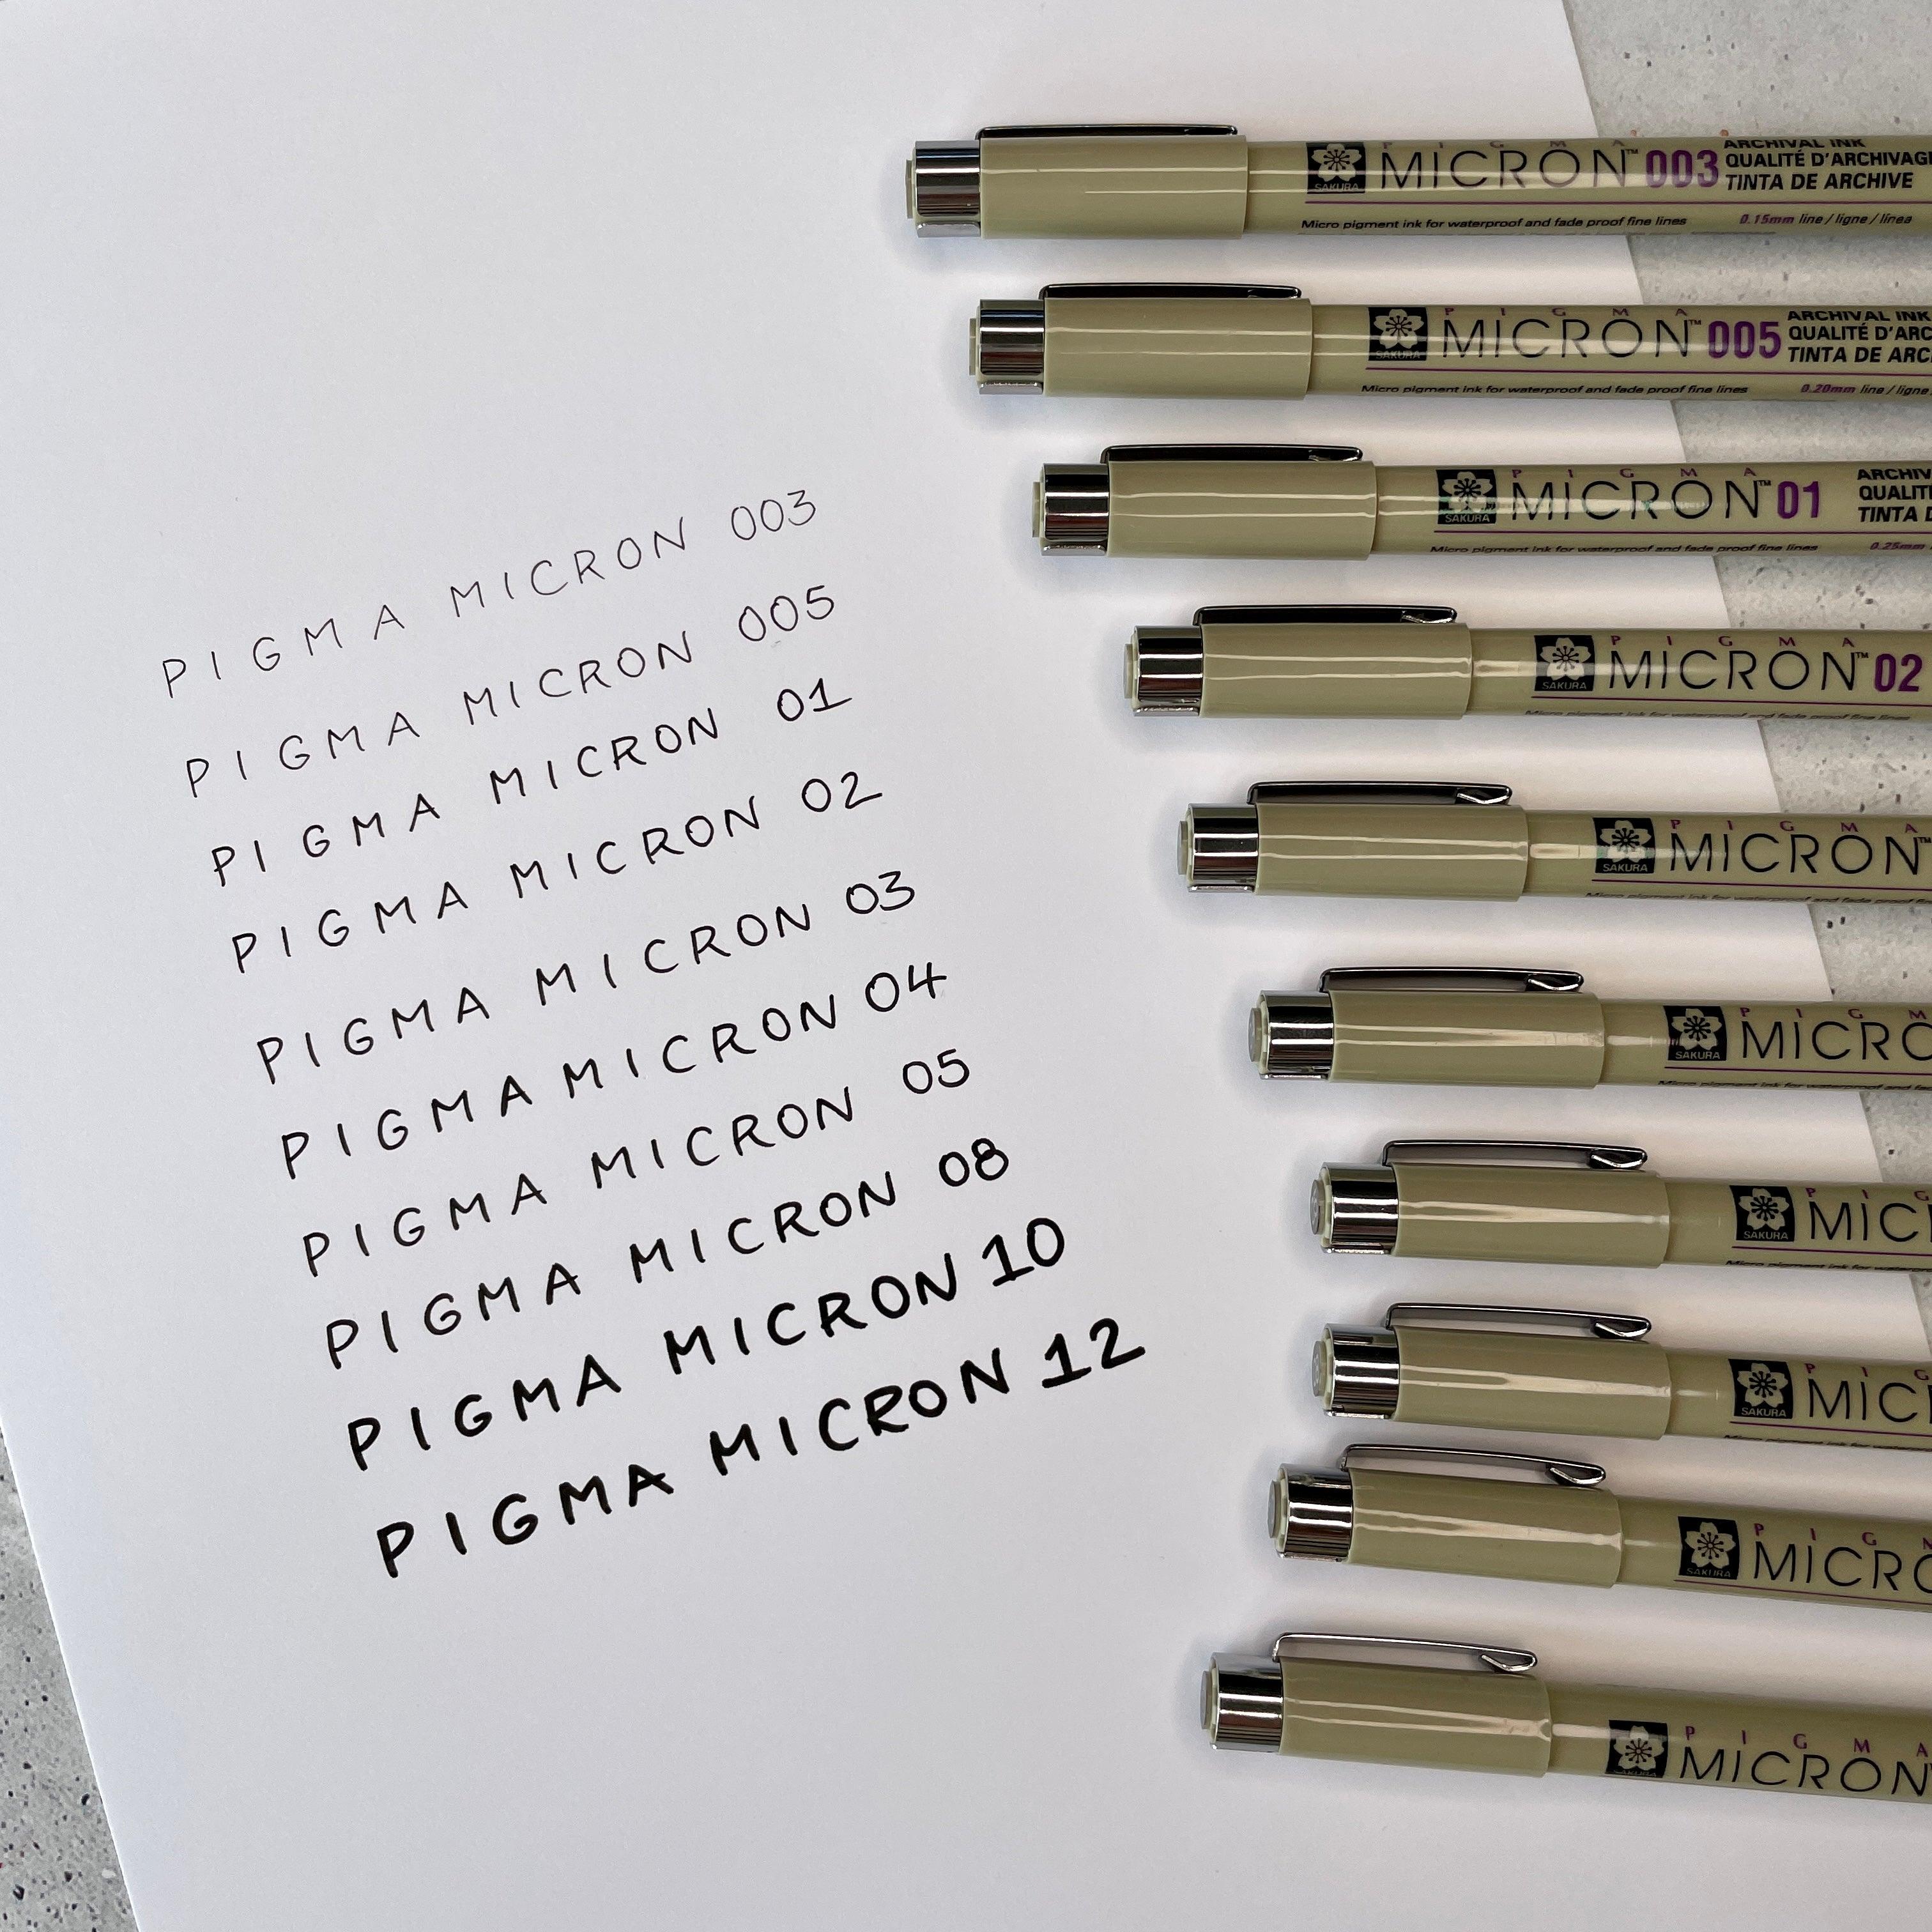 PIGMA MICRON 003
PIGMA MICRON 005
PIGMA MICRON 01
PIGMA MICRON 02
PIGMA MICRON 03
PIGMA MICRON 04
PIGMA MICRON 05
PIGMA MICRON 08
PIGMA MICRON 10
PIGMA MICRON 12
SAKURA
PIGMA
MICRON™ 003
ARCHIVAL INK
QUALITÉ D'ARCHIVAG
TINTA DE ARCHIVE
Micro pigment ink for waterproof and fade proof fine lines
0.15mm line / ligne / línea
SAKURA
PIGMA
MICRON™ 005
ARCHIVAL INK
QUALITÉ D'ARC
TINTA DE ARC
Micro pigment ink for waterproof and fade proof fine lines
0.20mm line / ligne
SAKURA
PIGMA
MICRON™ 01
ARCHIV
QUALIT
TINTA D
Micro pigment ink for waterproof and fade proof fine lines
0.25mm
SAKURA
PIGMA
MICRON™ 02
Micro pigment ink for waterproof and fade proof fine lines
SAKURA
PIGMA
MICRON™
Micro pigment ink for waterproof and fade proof fin
SAKURA
PIGM
MICRO
Micro pigment ink for waterproof and fa
SAKURA
PIG
MIC
Micro pigment ink for waterp
SAKURA
PIG
MIC
Micro pigment ink for water
SAKURA
PIGM
MICRO
SAKURA
PIGMA
MICRON